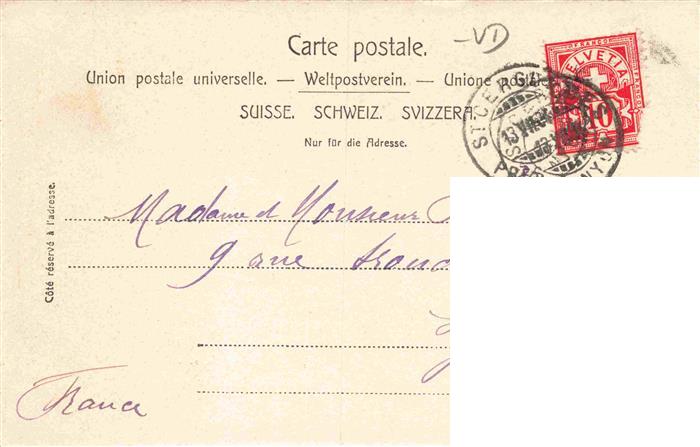 VD
Carte postale.
Union postale universelle. — Weltpostverein. — Unione postale
SUISSE. SCHWEIZ. SVIZZERA.
Nur für die Adresse.
FRANCO
HELVETIA
10
ST CERGUE
13
NYON
Côté réservé à l'adresse.
Madame et Monsieur
9 rue
France